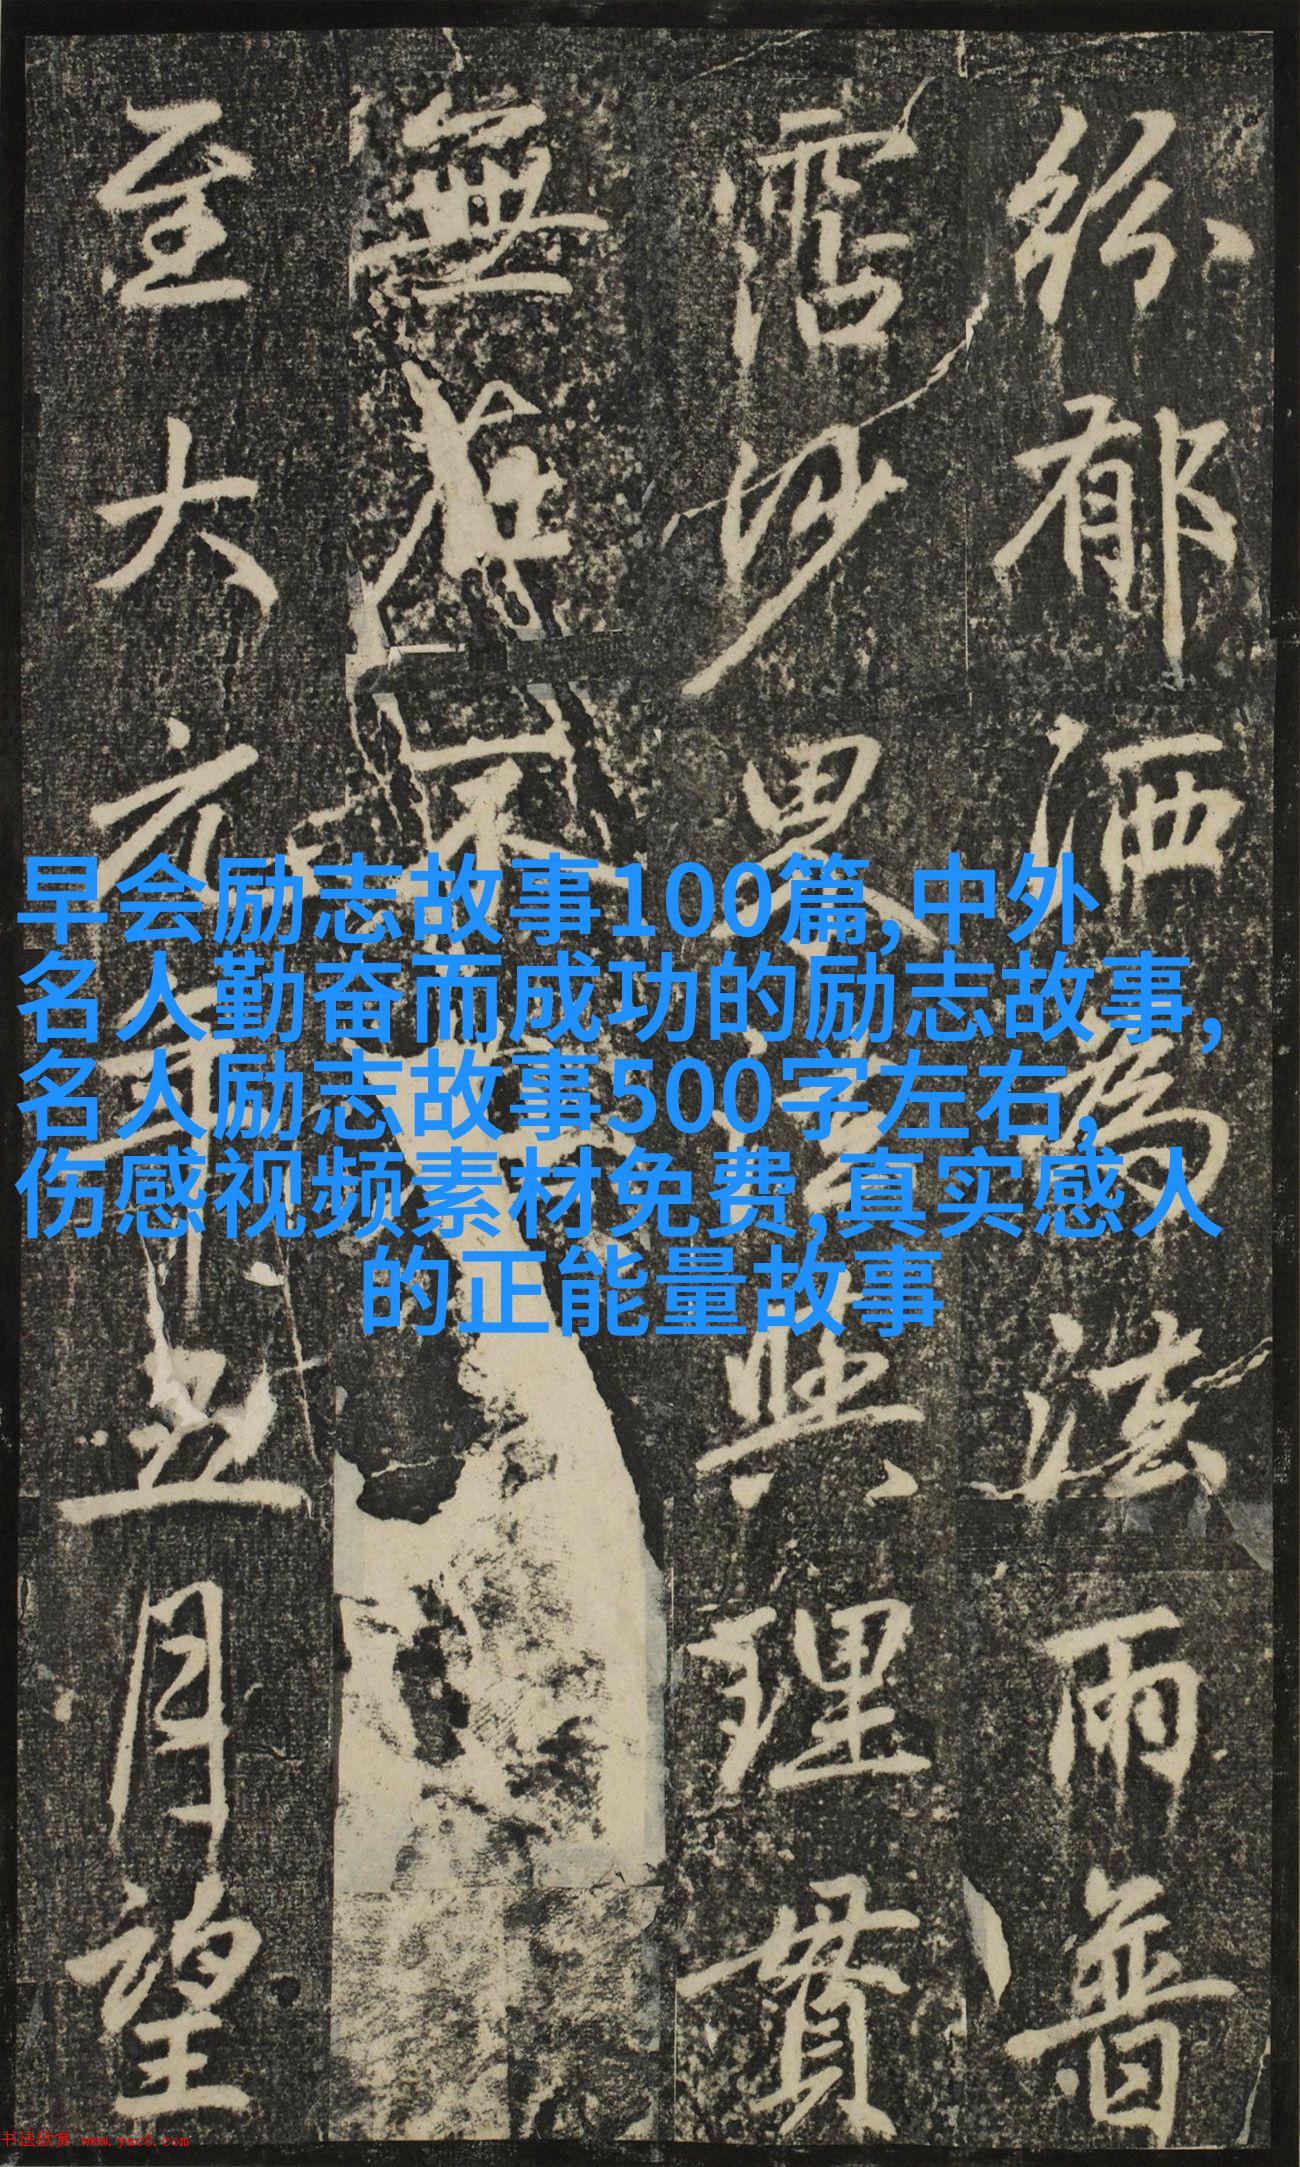 紛郁洒為法雨普
霑沙界與理貫
無在不
至大元年五月望
早会励志故事100篇,中外
名人勤奋而成功的励志故事,
名人励志故事500字左右,
伤感视频素材免费,真实感人
的正能量故事
书法欣赏 www.yac8.com